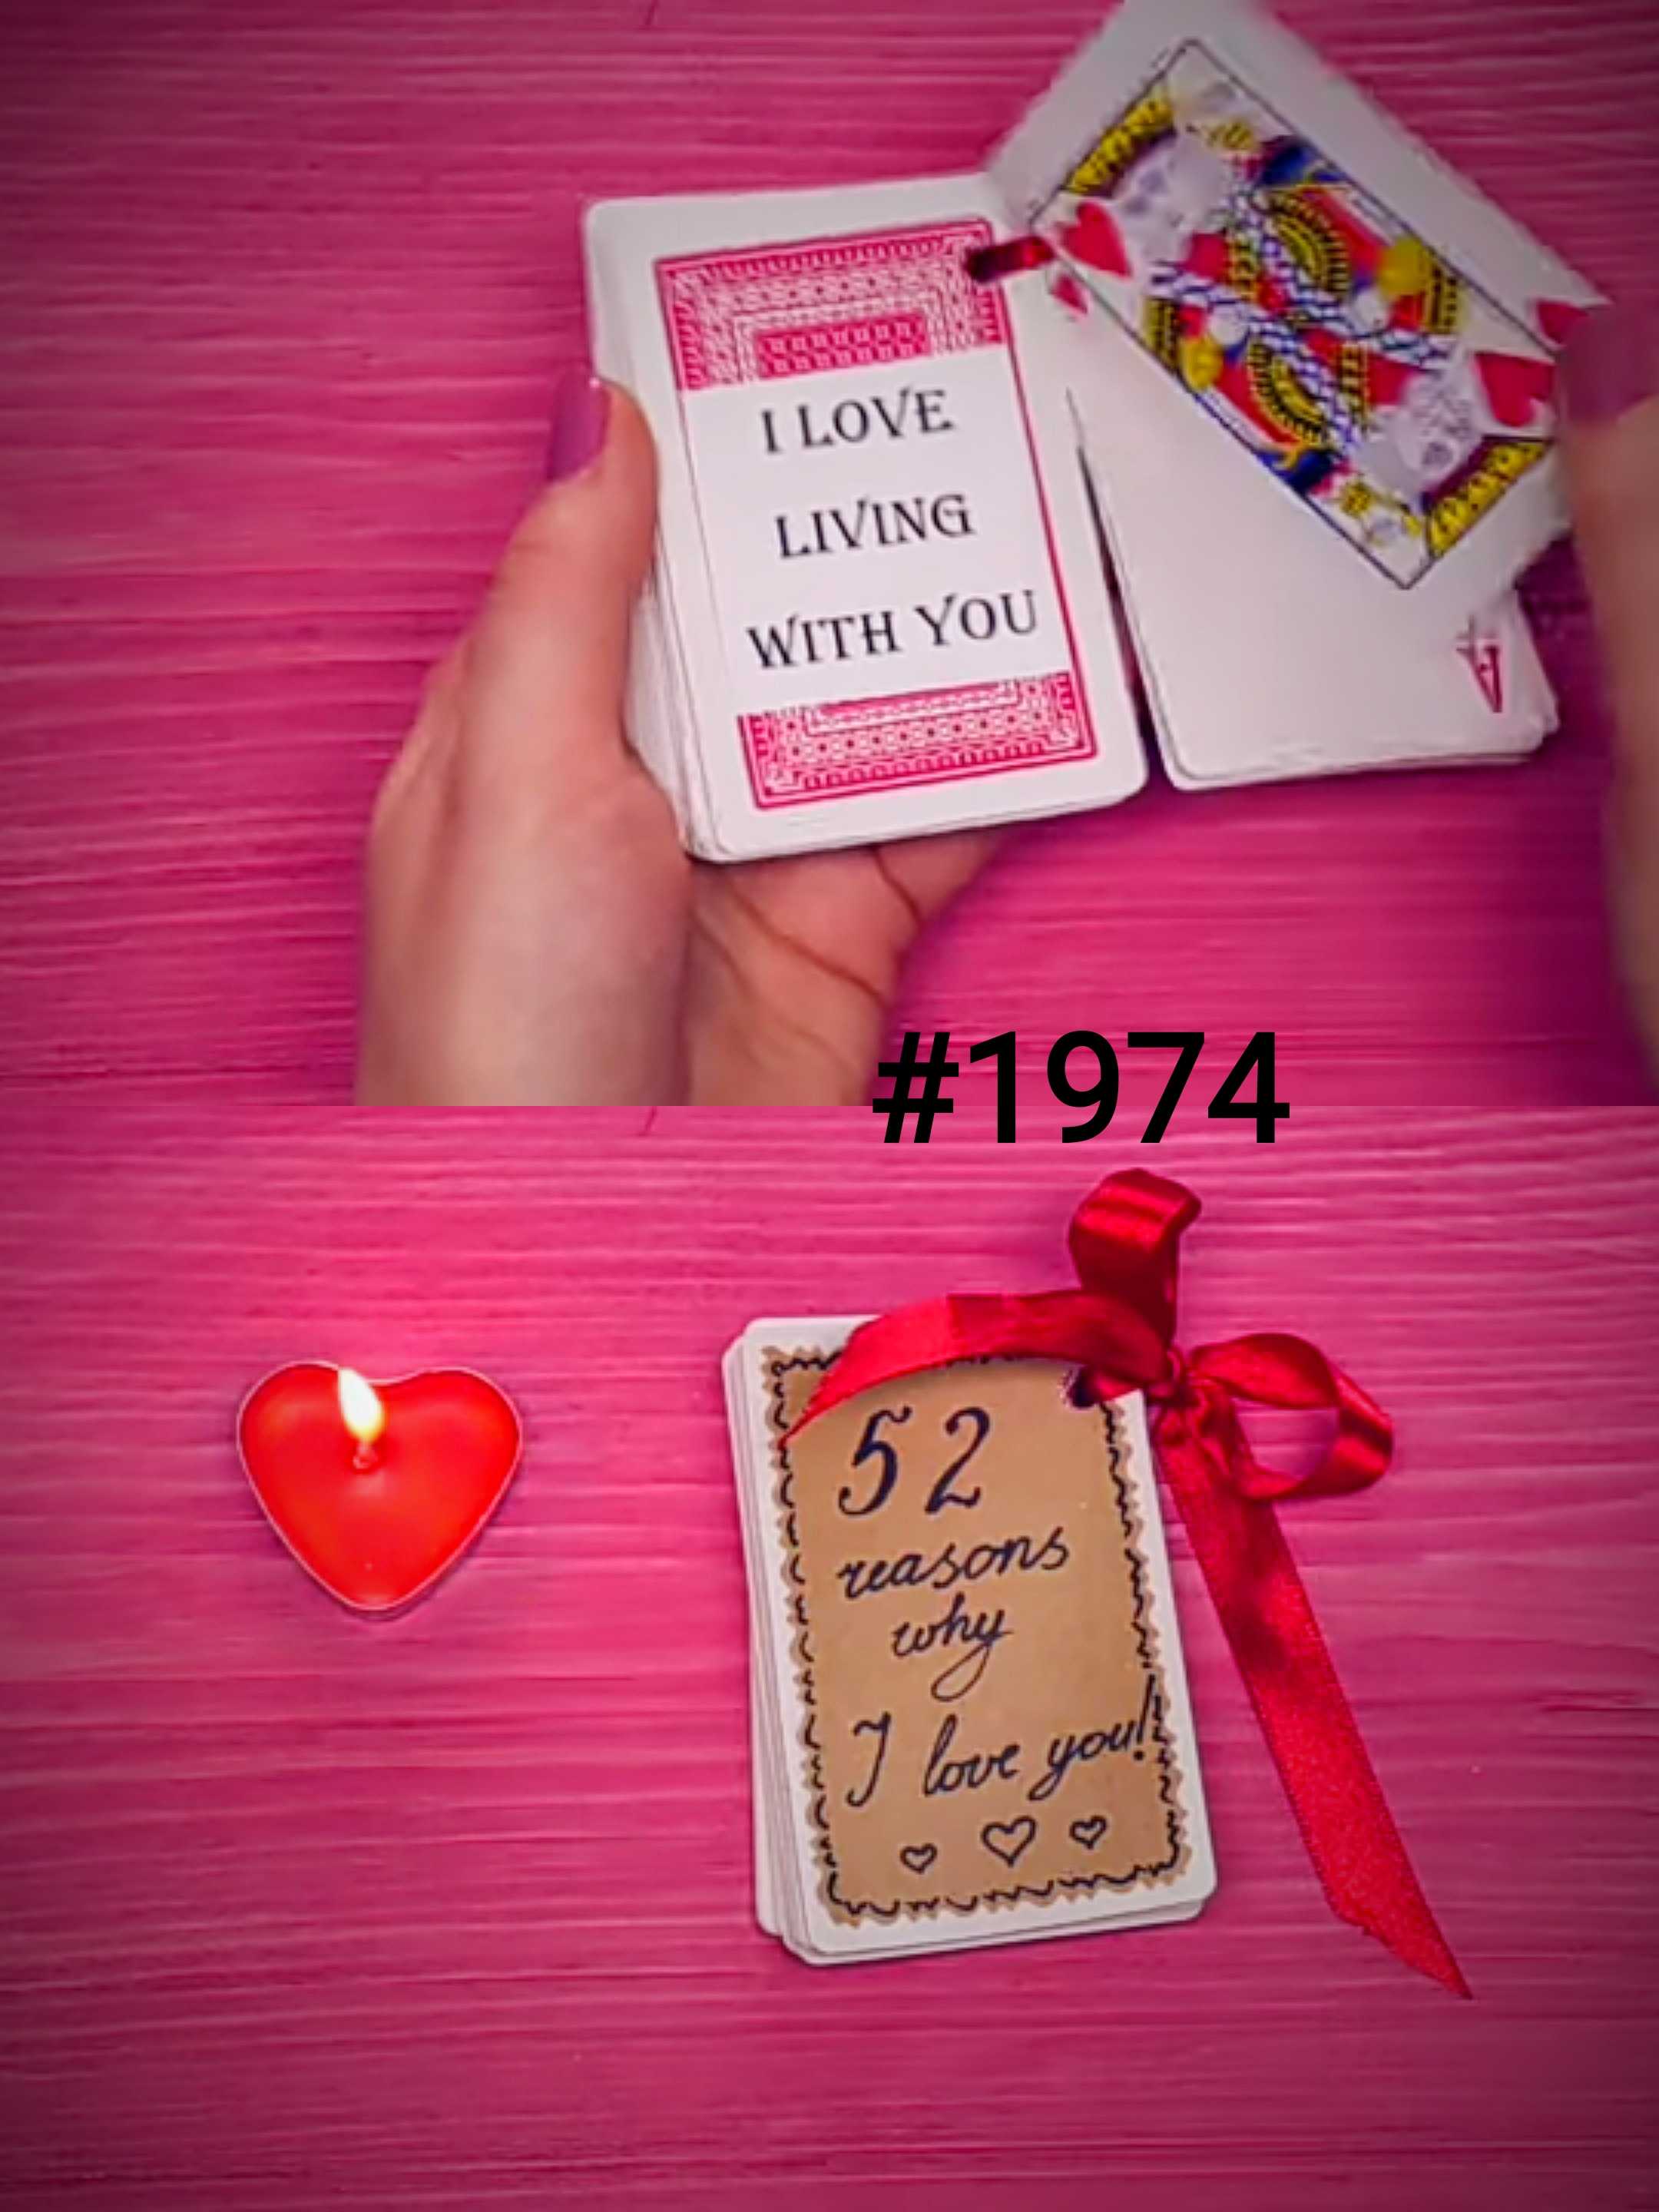 I LOVE
LIVING
WITH YOU
A
#1974
52
reasons
why
I love you!